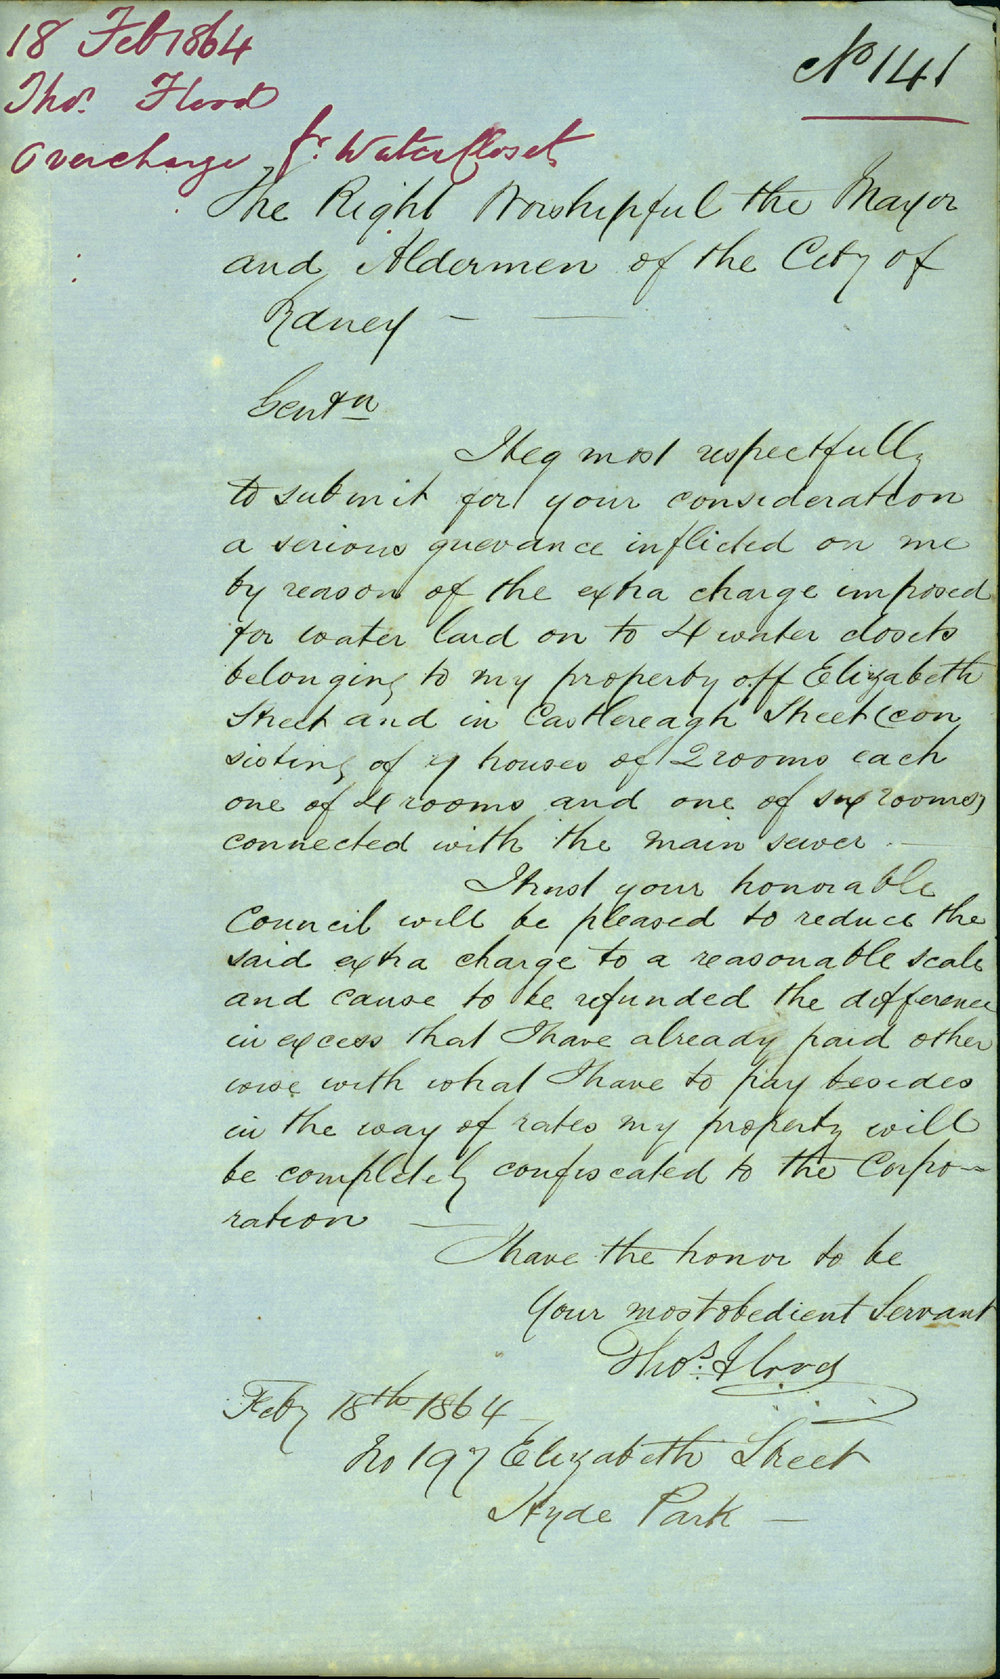 18 Feb 1864
Thos. Flood
Overcharge fr. Water Closets
No 141
The Right Worshipful the Mayor
and Aldermen of the City of
Sydney —
Gentn
I beg most respectfully
to submit for your consideration
a serious grievance inflicted on me
by reason of the extra charge imposed
for water laid on to 4 water closets
belonging to my property off Elizabeth
Street and in Castlereagh Street (con
sisting of 7 houses of 2 rooms each
one of 4 rooms and one of six rooms)
connected with the main sewer. —
I trust your honorable
Council will be pleased to reduce the
said extra charge to a reasonable scale
and cause to be refunded the difference
in excess that I have already paid other
wise with what I have to pay besides
in the way of rates my property will
be completely confiscated to the Corpo-
ration —
I have the honor to be
Your most obedient Servant
Thos. Flood
Feby 18th 1864
No 197 Elizabeth Street
Hyde Park —